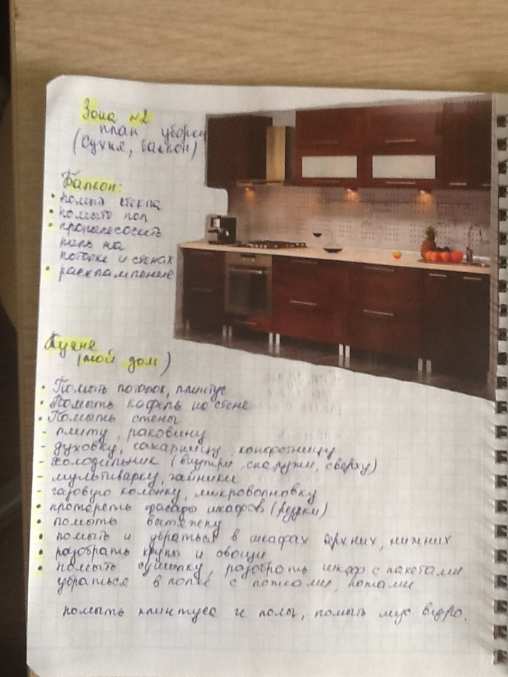 Зона №2
план уборки
(кухня, балкон)
Балкон:
• помыть стёкла
• помыть пол
• пропылесосить
пыль на
потолке и стенах
• расхламление
Кухня
(мой дом)
• Помыть потолок, плинтус
• Помыть кафель на стене
• Помыть стены
- плиту, раковину
- духовку, сахарницу, конфетницу
- холодильник (внутри, снаружи, сверху)
- мультиварку, чайники
- газовую колонку, микроволновку
• протереть фасады шкафов (ручки)
• помыть вытяжку
• помыть и убраться в шкафах верхних, нижних
• разобрать крупы и овощи
• помыть сушилку, разобрать шкаф с пакетами
убраться в полке с
помыть плинтуса и полы, помыть мус ведро.